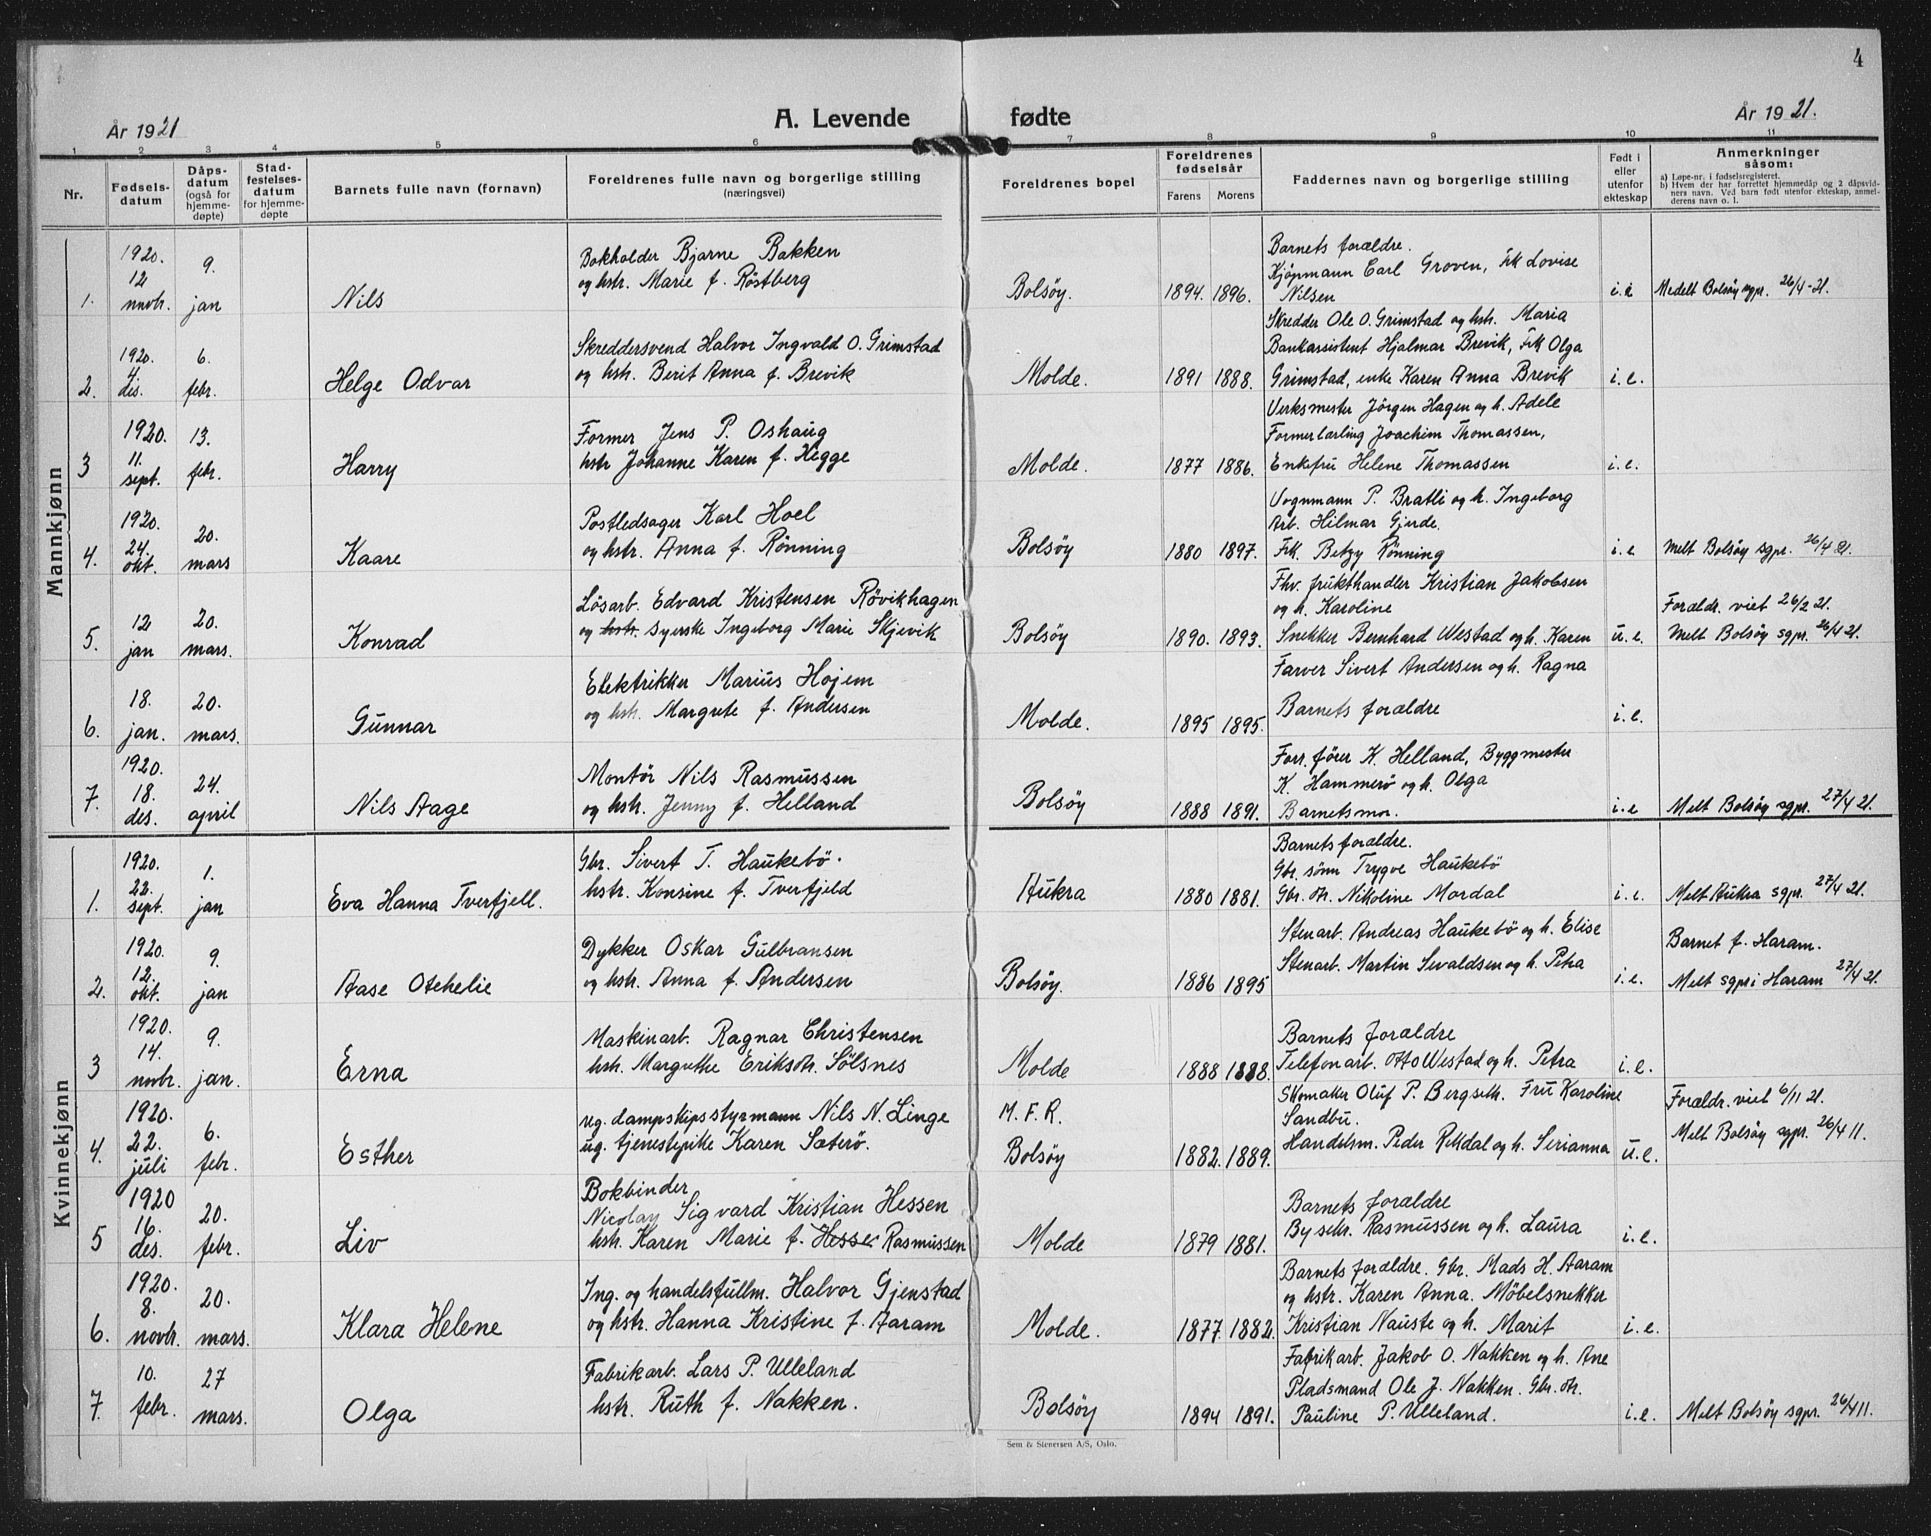 4
År 1921
A. Levende fødte
År 1921.
1 2 3 4 5 6 7 8 9 10 11
Nr.
Fødsels-
datum
Dåps-
datum
(også for
hjemme-
døpte)
Stad-
festelses-
datum
for hjemme-
døpte
Barnets fulle navn (fornavn)
Foreldrenes fulle navn og borgerlige stilling
(næringsvei)
Foreldrenes bopel
Foreldrenes
fødselsår
Farens Morens
Faddernes navn og borgerlige stilling
Født i
eller
utenfor
ekteskap
Anmerkninger
såsom:
a) Løpe-nr. i fødselsregisteret.
b) Hvem der har forrettet hjemmedåp og 2 dåpsvid-
ners navn. Ved barn født utenfor ekteskap, anmel-
derens navn o. l.
Mannkjønn
1. 1920. 12 novbr. 9. jan Nils
Bokholder Bjarne Bakken
og hstr. Marie f. Röstberg
Bolsöy. 1894. 1896.
Barnets forældre.
Kjöpmann Carl Groven, Frk Lovise
Nilsen
i. e Medelt Bolsöy sgpr. 26/4-21.
2. 1920. 4 des. 6. febr. Helge Odvar
Skreddersvend Halvor Ingvald O. Grimstad
og hstr. Berit Anna f. Brevik
Molde. 1891 1888.
Skredder Ole O. Grimstad og hstr. Maria
Bankassistent Hjalmar Brevik, Frk Olga
Grimstad, enke Karen Anna Brevik
i. e.
3 1920. 11. sept. 13. febr. Harry
Former Jens P. Oshaug
hstr Johanne Karen f. Hegge
Molde. 1877 1886.
Verksmester Jörgen Hagen og h. Adele
Formerlærling Joachim Thomassen,
Enkefru Helene Thomassen
i. e.
4. 1920. 24. okt. 20. mars Kaare
Postledsager Karl Hoel
og hstr. Anna f. Rönning
Bolsöy 1880 1897.
Vognmann P. Bratli og h. Ingeborg
Arb. Hilmar Gjerde.
Frk. Betzy Rönning
i. e Melt Bolsöy sgpr. 26/4 21.
5. 12 jan 20. mars. Konrad
Lösarb. Edvard Kristensen Rövikhagen
og hstr. syerske Ingeborg Marie Skjevik
Bolsöy 1890. 1893.
Fhv. frukthandler Kristian Jakobsen
og h. Karoline
Snekker Bernhard Westad og h. Karen
u. e.
Forældr. viet 26/2 21.
Melt Bolsöy sgpr. 26/4 21.
6. 18. jan. 20. mars. Gunnar
Elektrikker Marius Hojem
og hstr. Margrete f. Andersen
Molde. 1895 1895.
Farver Sivert Andersen og h. Ragna
Barnets forældre
i. e.
7. 1920. 18. des. 24. april Nils Aage
Montör Nils Rasmussen
og hstr. Jenny f. Helland
Bolsöy 1888 1891.
Forr.förer K. Helland, Byggmester
K. Hammerö og h. Olga
Barnets mor.
i. e Melt Bolsöy sgpr. 27/4 21.
Kvinnekjønn
1. 1920. 22. sept. 1. jan Eva Hanna Tverfjell.
Gbr. Sivert T. Haukebö.
hstr. Konsine f. Tverfjeld
Aukra 1880 1881.
Barnets forældre.
Gbr. sönn Trygve Haukebö
Gbr. dtr. Nikoline Mordal
i. e. Melt Aukra sgpr. 27/4 21.
2. 1920. 12. okt. 9. jan Aase Otehelie
Dykker Oskar Gulbransen
og hstr. Anna f. Andersen
Bolsöy. 1886 1895
Stenarb. Andreas Haukebö og h. Elise
Stenarb. Martin Sevaldsen og h. Petra
i. e.
Barnet f. Haram.
Melt sgpr i Haram 27/4 21.
3 1920. 14. novbr. 9. jan. Erna
Maskinarb. Ragnar Christensen
hstr. Margrethe Eriksdtr. Sölsnes
Molde 1888 1888.
Barnets forældre
Telefonarb. Otto Westad og h. Petra
i. e.
4. 1920. 22. juli 6. febr. Esther
ug. dampskipsstyrmann Nils N. Linge
ug. tjenestepike Karen Sæterö.
M. F. R.
Bolsöy 1882. 1889.
Skomaker Oluf P. Bergseth. Fru Karoline
Sandbu.
Handelsm. Peder Rekdal og h. Serianna
u. e.
Forældr. viet 6/11 21.
Melt Bolsöy sgpr. 26/4 11.
5 1920 16. des. 20. febr. Liv
Bokbinder
Nicolay Sigvard Kristian Hessen
hstr. Karen Marie f. Hesse Rasmussen
Molde 1879 1881.
Barnets forældre
By sekr. Rasmussen og h. Laura
i. e.
6. 1920. 8. novbr. 20. mars. Klara Helene
Ing. og handelsfullm. Halvor Gjenstad
og hstr. Hanna Kristine f. Aaram
Molde. 1877. 1882.
Barnets forældre. Gbr. Mads H. Aaram
og hstr. Karen Anna. Möbelsnekker
Kristian Nauste og h. Marit
i. e.
7. 10. febr. 27 mars. Olga
Fabrikarb. Lars P. Ulleland
hstr. Ruth f. Nakken.
Bolsöy 1894 1891.
Fabrikarb. Jakob O. Nakken og h. Ane
Pladsmand Ole J. Nakken. Gbr. dtr.
Pauline P. Ulleland.
i. e. Melt Bolsöy sgpr. 26/4 11.
Sem & Stenersen A/S, Oslo.